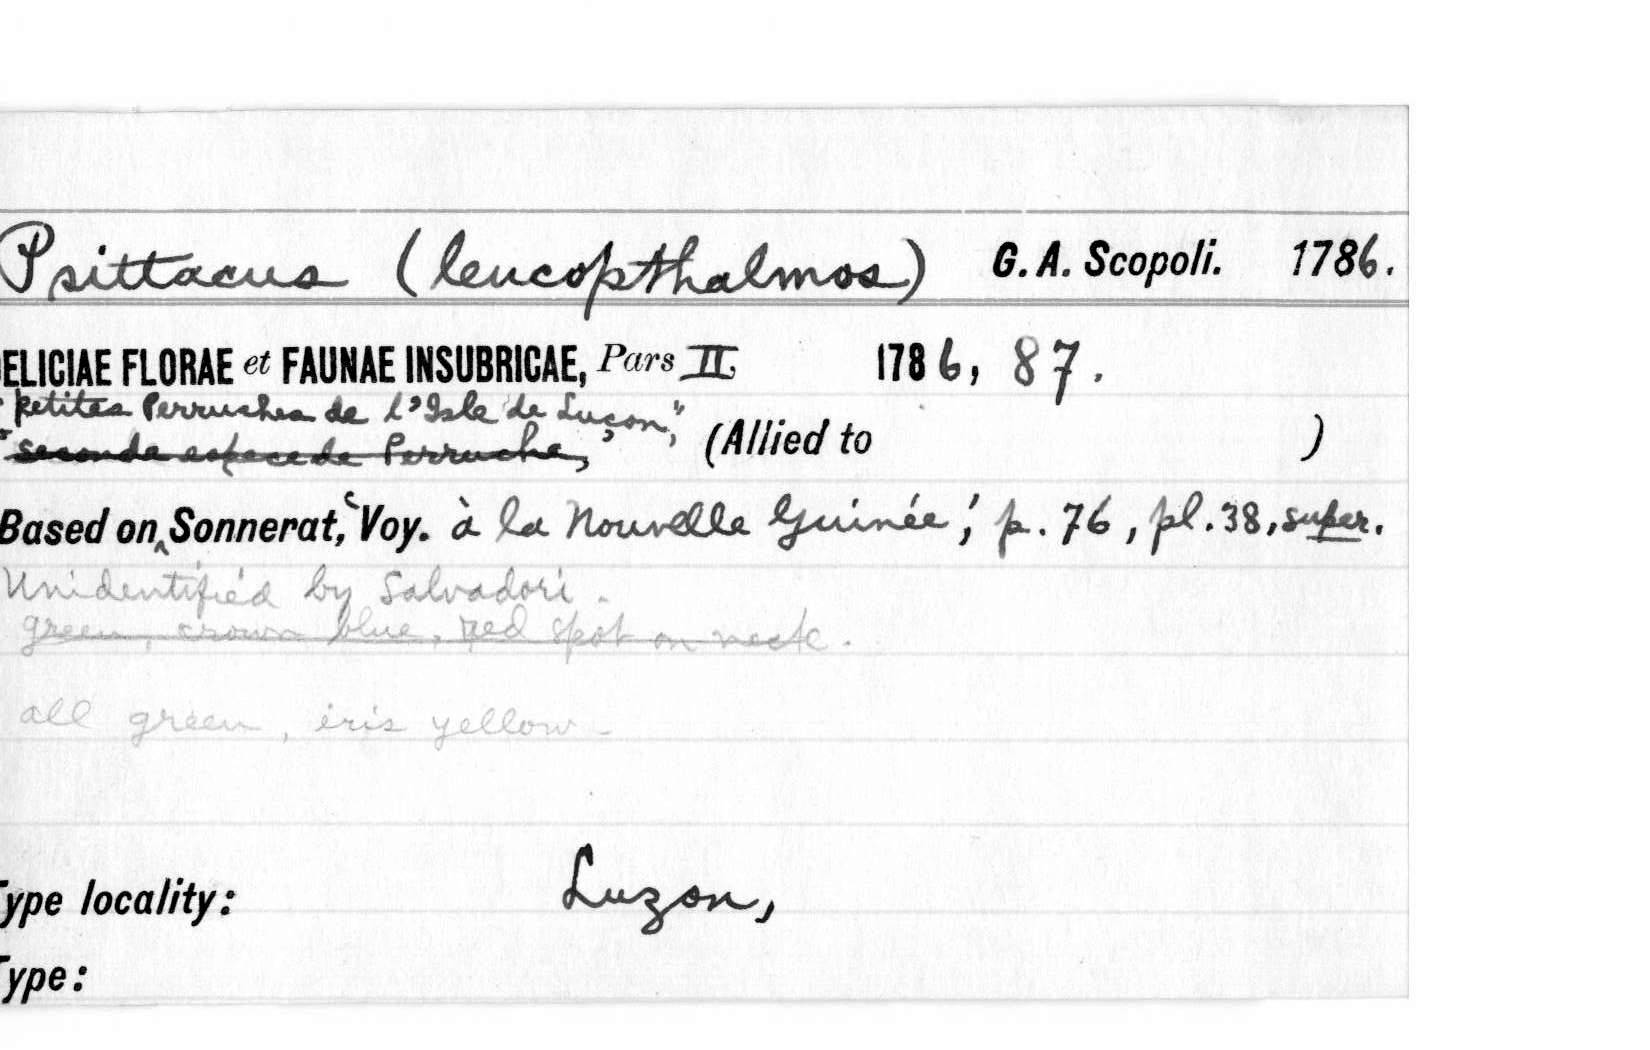 Psittacus (leucopthalmos) G. A. Scopoli. 1786.
ELICIAE FLORAE et FAUNAE INSUBRICAE, Pars II, 1786, 87.
"petites Perruches de l'Isle de Luçon,"
"seconde espece de Perruche," (Allied to )
Based on Sonnerat, 'Voy. à la Nouvelle Guinée', p. 76, pl. 38, super.
Unidentified by Salvadori.
green, crown blue, red spot on neck.
all green, iris yellow.
Type locality: Luzon,
Type: